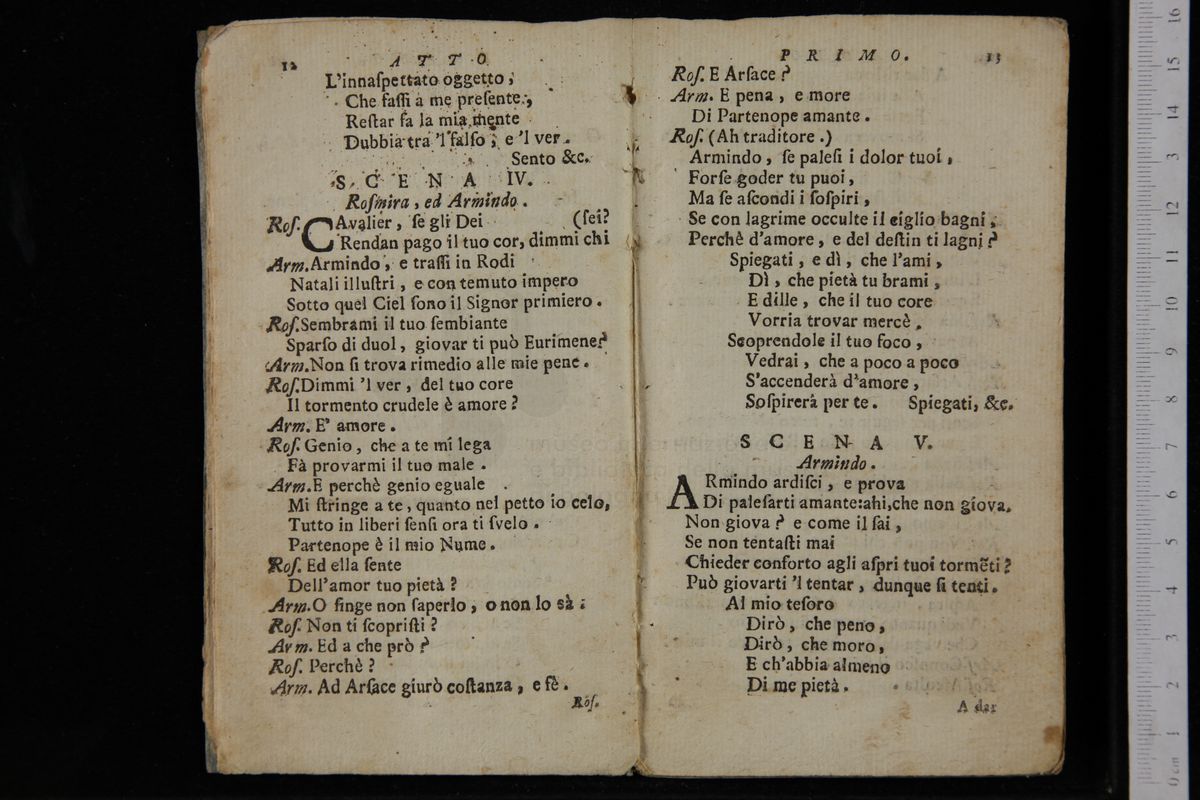 12 ATTO
L'innaſpettato oggetto,
Che faſſi a me preſente,
Reſtar fa la mia mente
Dubbia tra 'l falſo, e 'l ver.
Sento &c.
SCENA IV.
Roſmira, ed Armindo.
Roſ. CAvalier, ſe gli Dei (ſei?
Rendan pago il tuo cor, dimmi chi
Arm. Armindo, e traſſi in Rodi
Natali illuſtri, e con temuto impero
Sotto quel Ciel ſono il Signor primiero.
Roſ. Sembrami il tuo ſembiante
Sparſo di duol, giovar ti può Eurimene?
Arm. Non ſi trova rimedio alle mie pene.
Roſ. Dimmi 'l ver, del tuo core
Il tormento crudele è amore?
Arm. E' amore.
Roſ. Genio, che a te mi lega
Fà provarmi il tuo male.
Arm. E perchè genio eguale
Mi ſtringe a te, quanto nel petto io celo,
Tutto in liberi ſenſi ora ti ſvelo.
Partenope è il mio Nume.
Roſ. Ed ella ſente
Dell'amor tuo pietà?
Arm. O finge non ſaperlo, o non lo sà:
Roſ. Non ti ſcopriſti?
Arm. Ed a che prò?
Roſ. Perchè?
Arm. Ad Arſace giurò coſtanza, e fè.
Roſ.
PRIMO. 13
Roſ. E Arſace?
Arm. E pena, e more
Di Partenope amante.
Roſ. (Ah traditore.)
Armindo, ſe paleſi i dolor tuoi,
Forſe goder tu puoi,
Ma ſe aſcondi i ſoſpiri,
Se con lagrime occulte il ciglio bagni,
Perchè d'amore, e del deſtin ti lagni?
Spiegati, e dì, che l'ami,
Dì, che pietà tu brami,
E dille, che il tuo core
Vorria trovar mercè.
Scoprendole il tuo foco,
Vedrai, che a poco a poco
S'accenderà d'amore,
Soſpirerà per te. Spiegati, &c.
SCENA V.
Armindo.
ARmindo ardiſci, e prova
Di paleſarti amante: ahi, che non giova.
Non giova? e come il ſai,
Se non tentaſti mai
Chieder conforto agli aſpri tuoi tormẽti?
Può giovarti 'l tentar, dunque ſi tenti.
Al mio teſoro
Dirò, che peno,
Dirò, che moro,
E ch'abbia almeno
Di me pietà.
A dar
0 cm 1 2 3 4 5 6 7 8 9 10 11 12 3 14 15 16